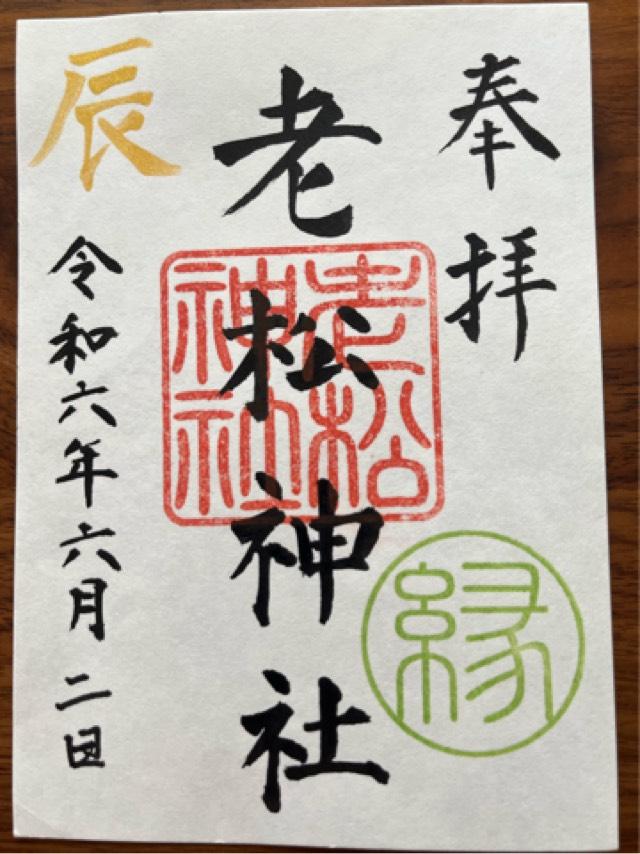 奉拝
老松神社
老松神社
縁
辰
令和六年六月二日